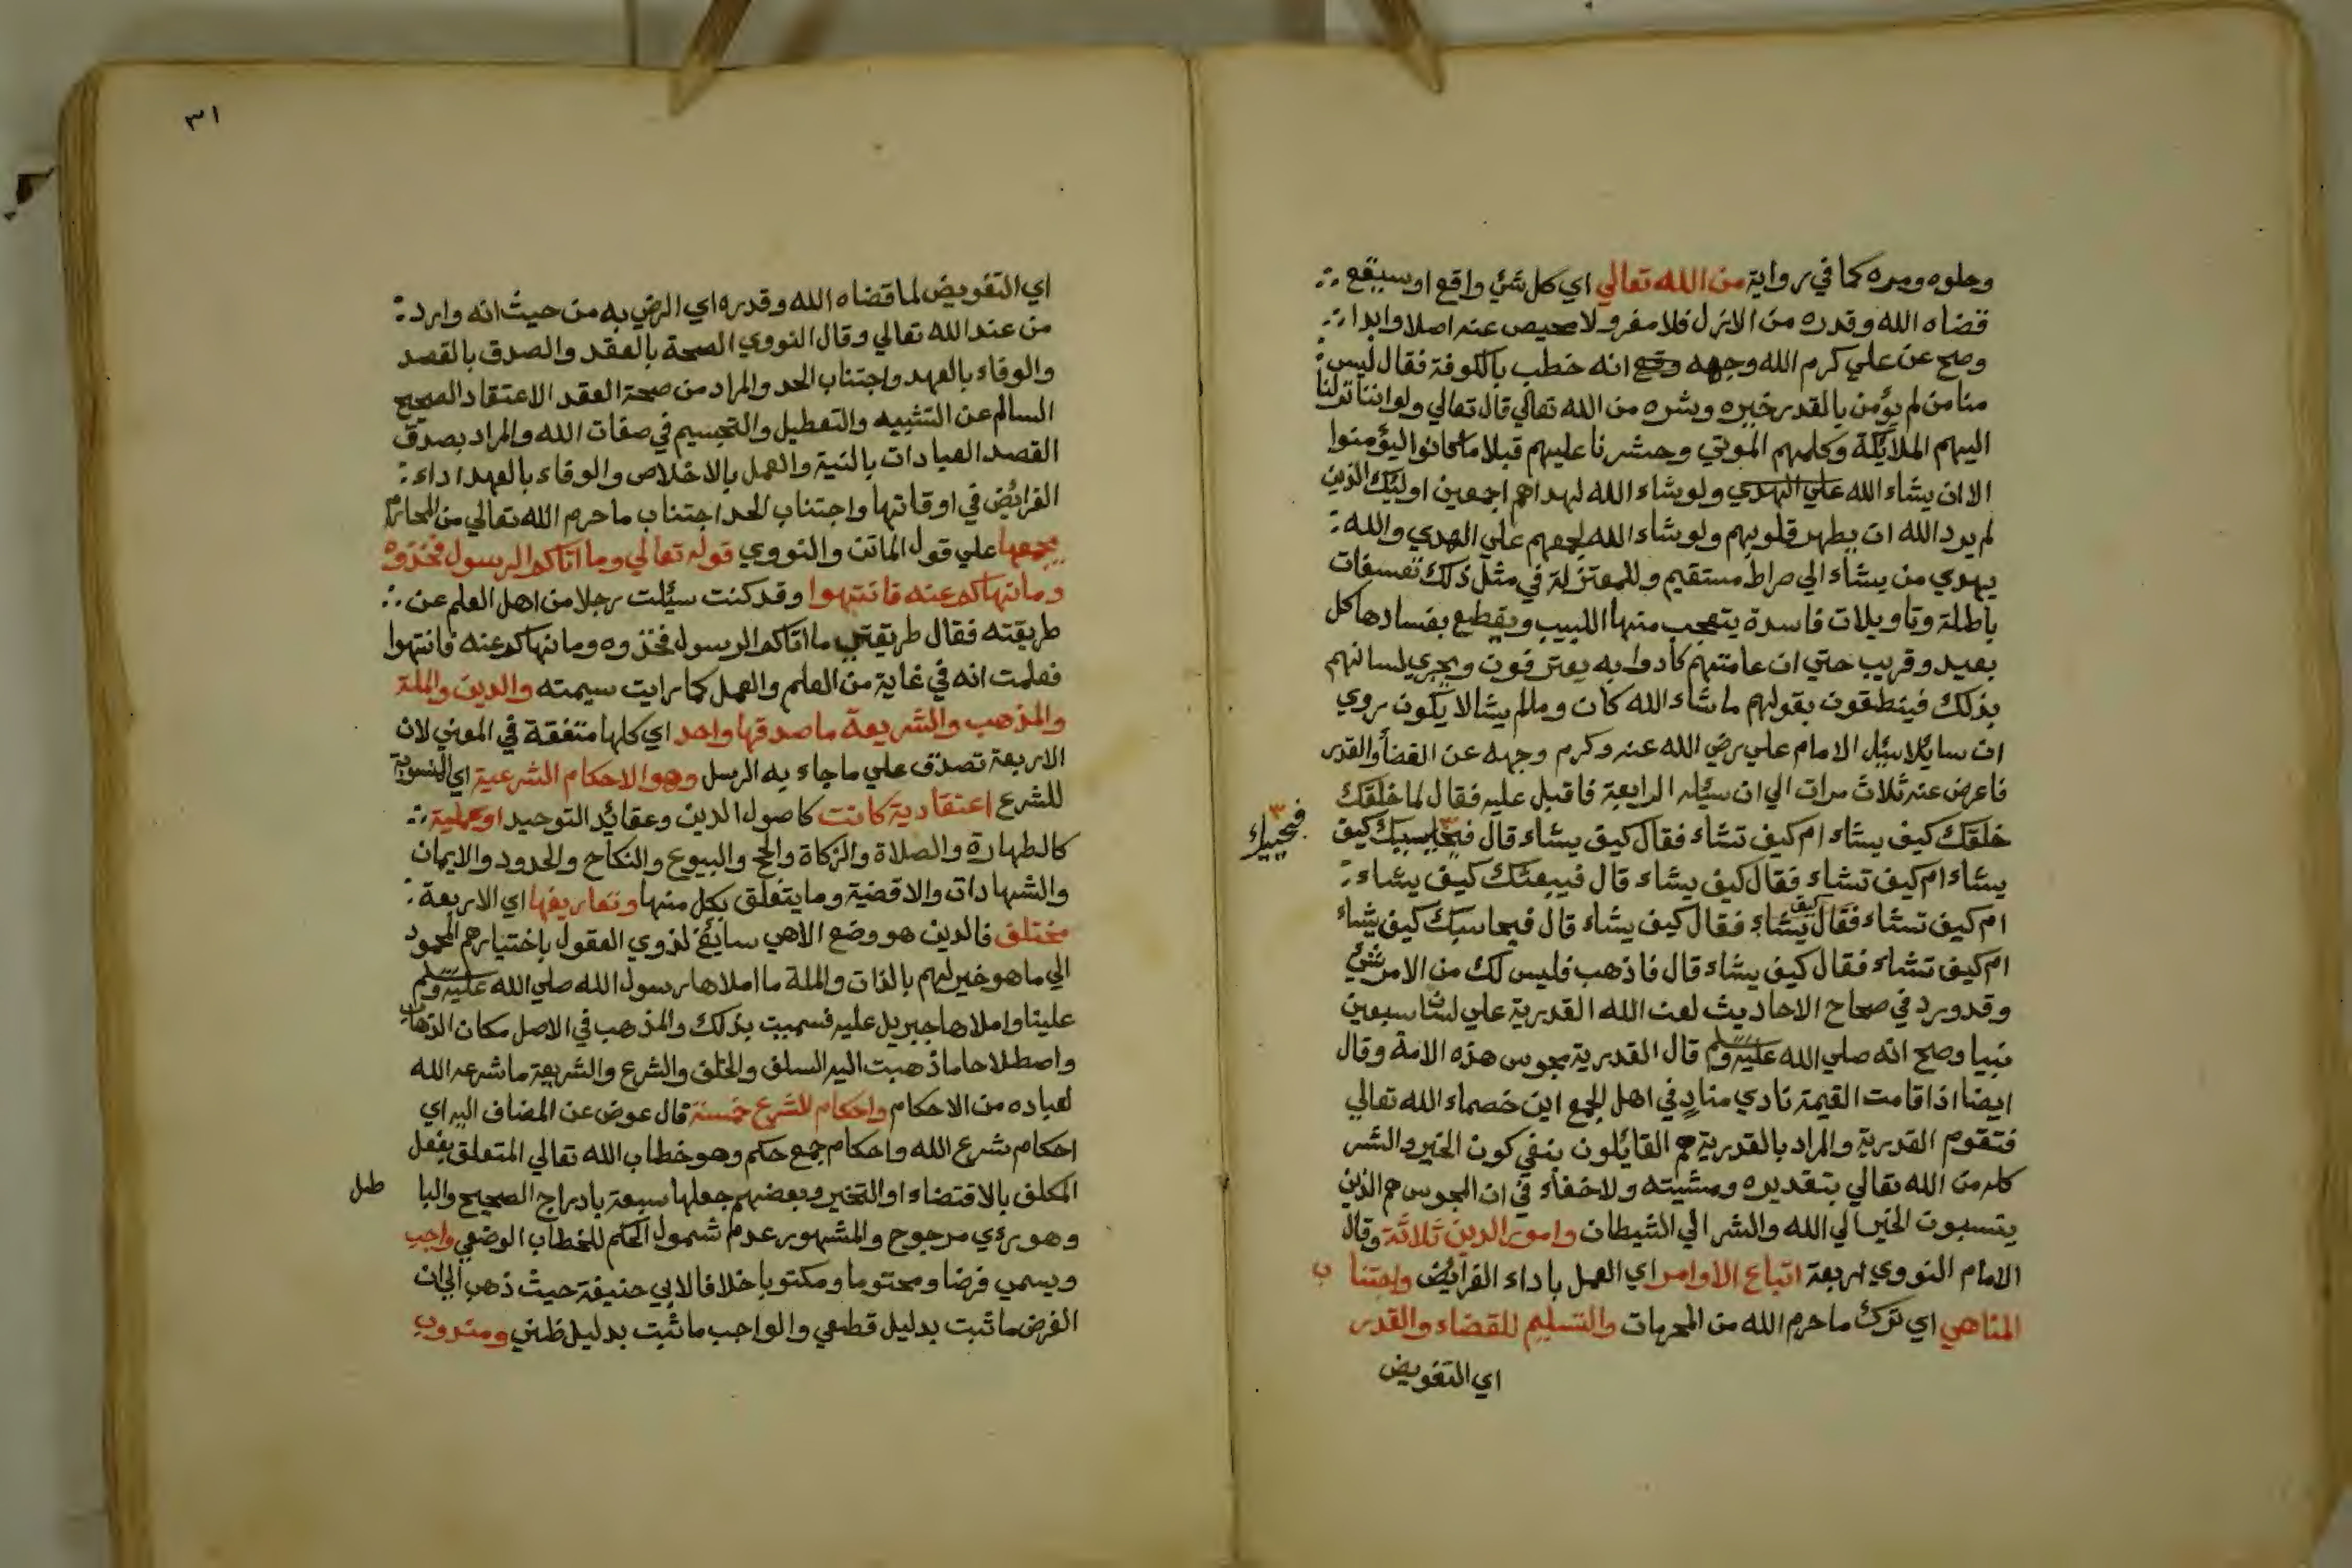 وحلوه ومره كما في رواية من الله تعالي اي كل شئ واقع او سيقع
قضاه الله وقدره من الازل فلا مفر ولا محيص عنه اصلا وابدا
وصح عن علي كرم الله وجهه انه خطب بالكوفة فقال ليس
منا من لم يؤمن بالقدر خيره وشره من الله تعالي قال تعالي ولو اننا نزلنا
اليهم الملائكة وكلمهم الموتي وحشرنا عليهم قبلا ما كانوا ليؤمنوا
الا ان يشاء الله علي الهدي ولو يشاء الله لهداهم اجمعين اوليك الذين
لم يرد الله ان يطهر قلوبهم ولو شاء الله لجمعهم علي الهدي والله
يهدي من يشاء الي صراط مستقيم وللمعتزلة في مثل ذلك تعسفات
باطلة وتاويلات فاسدة يتعجب منها اللبيب ويقطع بفسادها كل
بعيد وقريب حتي ان عامتهم كادوا به يعترفون ويجري لسانهم
بذلك فينطقون بقولهم ما شاء الله كان وما لم يشا لا يكون روي
ان سايلا سيل الامام علي رضي الله عنه وكرم وجهه عن القضا والقدر
فاعرض عنه ثلاث مرات الي ان سيله الرابعة فاقبل عليه فقال لما خلقك
خلقك كيف يشاء ام كيف تشاء فقال كيف يشاء قال كيف
يشاء ام كيف تشاء فقال كيف يشاء قال فيبعثك كيف يشاء
ام كيف تشاء فقال كيف يشاء فقال كيف يشاء قال فيحاسبك كيف يشاء
ام كيف تشاء فقال كيف يشاء قال فاذهب فليس لك من الامر شئ
وقد ورد في صحاح الاحاديث لعن الله القدرية علي لسان سبعين
نبيا وصح انه صلي الله عليه وسلم قال القدرية مجوس هذه الامة وقال
ايضا اذا قامت القيمة نادي مناد في اهل الجمع اين خصماء الله تعالي
فتقوم القدرية والمراد بالقدرية هم القايلون بنفي كون الخير والشر
كله من الله تعالي بتقديره ومشيته ولا خفاء في ان المجوس هم الذين
ينسبون الخير الي الله والشر الي الشيطان وامور الدين ثلاثة وقال
الامام النووي اربعة اتباع الاوامر اي العمل باداء الفرائض واجتناب
المناهي اي ترك ما حرم الله من المحرمات والتسليم للقضاء والقدر
اي التفويض
٣١
اي التفويض لما قضاه الله وقدره اي الرضي به من حيث انه وارد
من عند الله تعالي وقال النووي الصحة بالعقد والصدق بالقصد
والوفاء بالعهد واجتناب الحد والمراد من صحة العقد الاعتقاد الصحيح
السالم عن التشبيه والتعطيل والتجسيم في صفات الله والمراد بصدق
القصد العبادات بالنية والعمل بالاخلاص والوفاء بالعهد اداء
الفرائض في اوقاتها واجتناب الحد اجتناب ما حرم الله تعالي من المحارم
يجمعها علي قول الماتن والنووي قوله تعالي وما اتاكم الرسول فخذوه
وما نهاكم عنه فانتهوا وقد كنت سيلت رجلا من اهل العلم عن
طريقته فقال طريقتي ما اتاكم الرسول فخذوه وما نهاكم عنه فانتهوا
فعلمت انه في غاية من العلم والعمل كما رايت سيمته والدين والملة
والمذهب والشريعة ما صدقها واحد اي كلها متفقة في المعني لان
الاربعة تصدق علي ما جاء به الرسل وهو الاحكام الشرعية اي المنسوبة
للشرع اعتقادية كانت كاصول الدين وعقائد التوحيد او عملية
كالطهارة والصلاة والزكاة والحج والبيوع والنكاح والحدود والايمان
والشهادات والاقضية وما يتعلق بكل منها وتعاريفها اي الاربعة
مختلف فالدين هو وضع الاهي سايغ لذوي العقول باختيارهم المحمود
الي ما هو خير لهم بالذات والملة ما املاها رسول الله صلي الله عليه وسلم
علينا واملاها جبريل عليه فسميت بذلك والمذهب في الاصل مكان الذهاب
واصطلاحا ما ذهبت اليه السلف والخلف والشرع والشريعة ما شرعه الله
لعباده من الاحكام واحكام الشرع خمسة قال عوض عن المضاف اليه اي
احكام شرع الله واحكام جمع حكم وهو خطاب الله تعالي المتعلق بفعل
المكلف بالاقتضاء او التخير وبعضهم جعلها سبعة بادراج الصحيح والبا طل
وهو رءي مرجوح والمشهور عدم شمول الحكم للخطاب الوضعي واجب
ويسمي فرضا ومحتوما ومكتوبا خلافا لابي حنيفة حيث ذهب الي ان
الفرض ما ثبت بدليل قطعي والواجب ما ثبت بدليل ظني ومندوب